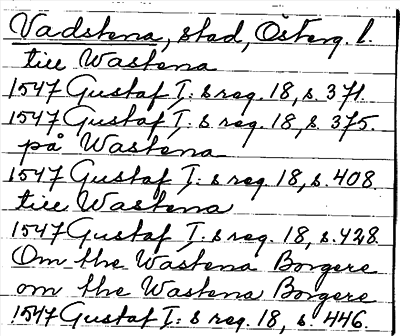 Vadstena, stad, Österg. l.
till Wastena
1547 Gustaf I:s reg. 18, s. 371.
1547 Gustaf I:s reg. 18, s. 375.
på Wastena
1547 Gustaf I:s reg. 18, s. 408.
till Wastena
1547 Gustaf I:s reg. 18, s. 428.
Om the Wastena Borgere
om the Wastena Borgere
1547 Gustaf I:s reg. 18, s. 446.